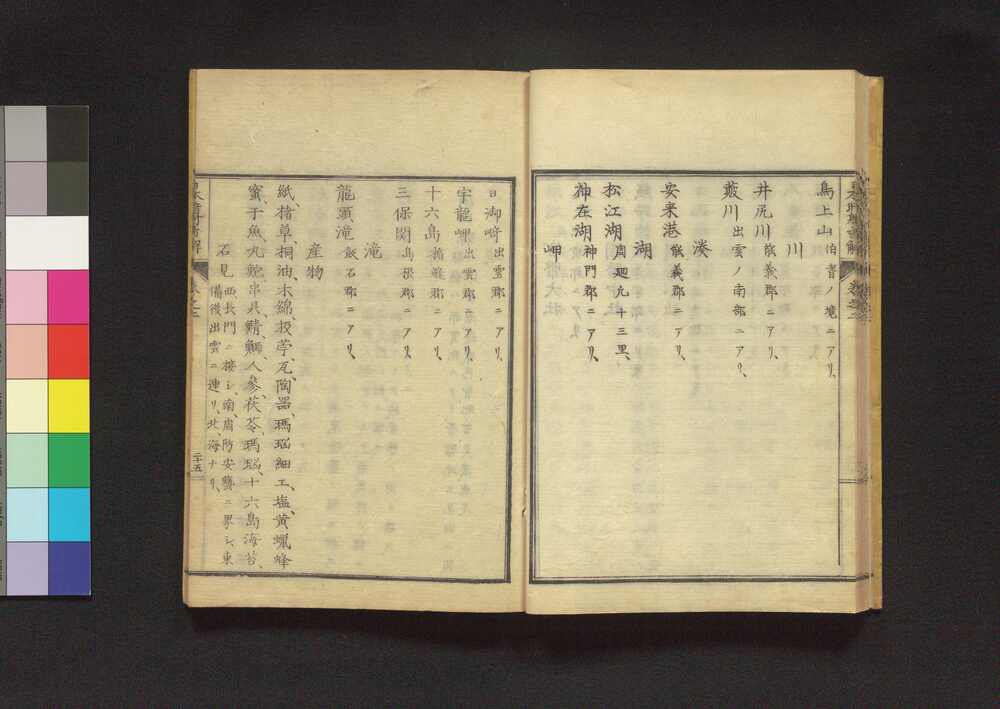 鳥上山 伯耆ノ境ニアリ、
川
井尻川 能義郡ニアリ、
藪川 出雲ノ南部ニアリ、
湊
安来港 能義郡ニアリ、
湖
松江湖 周廻九十三里、
神在湖 神門郡ニアリ、
岬
日御崎 出雲郡ニアリ、
宇龍岬 出雲郡ニアリ、
十六島 楯縫郡ニアリ、
三保関 島根郡ニアリ、
滝
龍頭滝 飯石郡ニアリ、
産物
紙、楮、草、桐油、木綿、扱苧、瓦、陶器、瑪瑙細工、塩、黄蠟、蜂
蜜、干魚、丸鮀、串貝、鯖、鰤、人参、茯苓、瑪瑙、十六島海苔、
石見 西長門ニ接シ、南周防安藝ニ界シ、東
備後出雲ニ連リ、北、海ナリ、
二十五